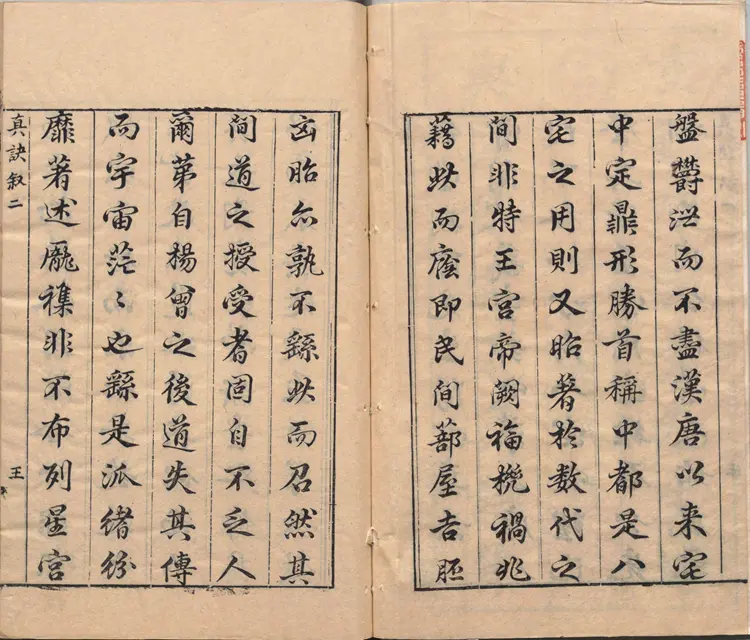 盤欝泄而不盡漢唐以来宅
中定鼎形勝首稱中都是八
宅之用則又昭著於数代之
間非特王宮帝闕福機禍兆
藉此而廕即民間蔀屋吉胚
凶胎亦孰不繇此而召然其
間道之授受者固自不乏人
爾苐自楊曾之後道失其傳
而宇宙茫〻也繇是派緒紛
靡著述龐襍非不布列星宮
真訣叙二 王